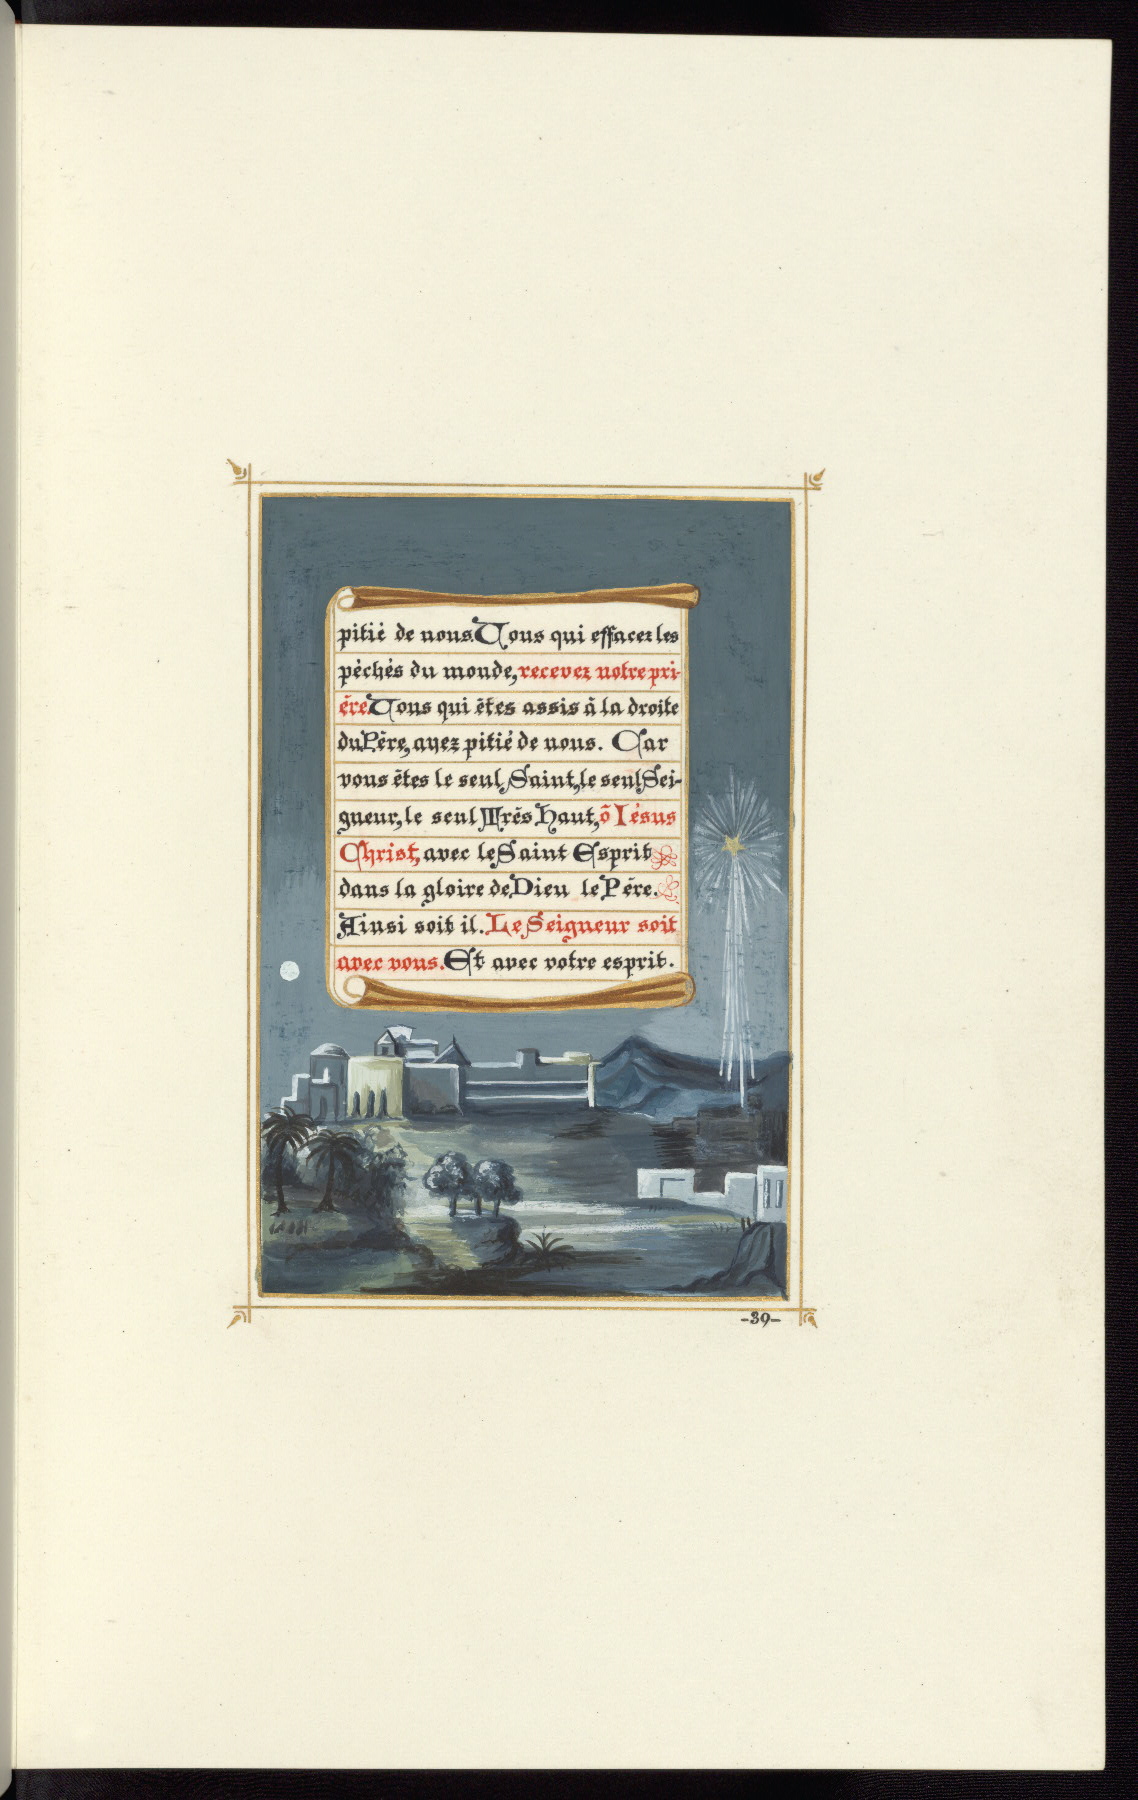 pitié de nous. Vous qui effacez les
péchés du monde, recevez notre pri-
ère Vous qui êtes assis à la droite
du Père, ayez pitié de nous. Car
vous êtes le seul Saint, le seul Sei-
gneur, le seul Très Haut, ô Iésus
Christ, avec le Saint Esprit
dans la gloire de Dieu le Père.
Ainsi soit il. Le Seigneur soit
avec vous. Et avec votre esprit.
-39-